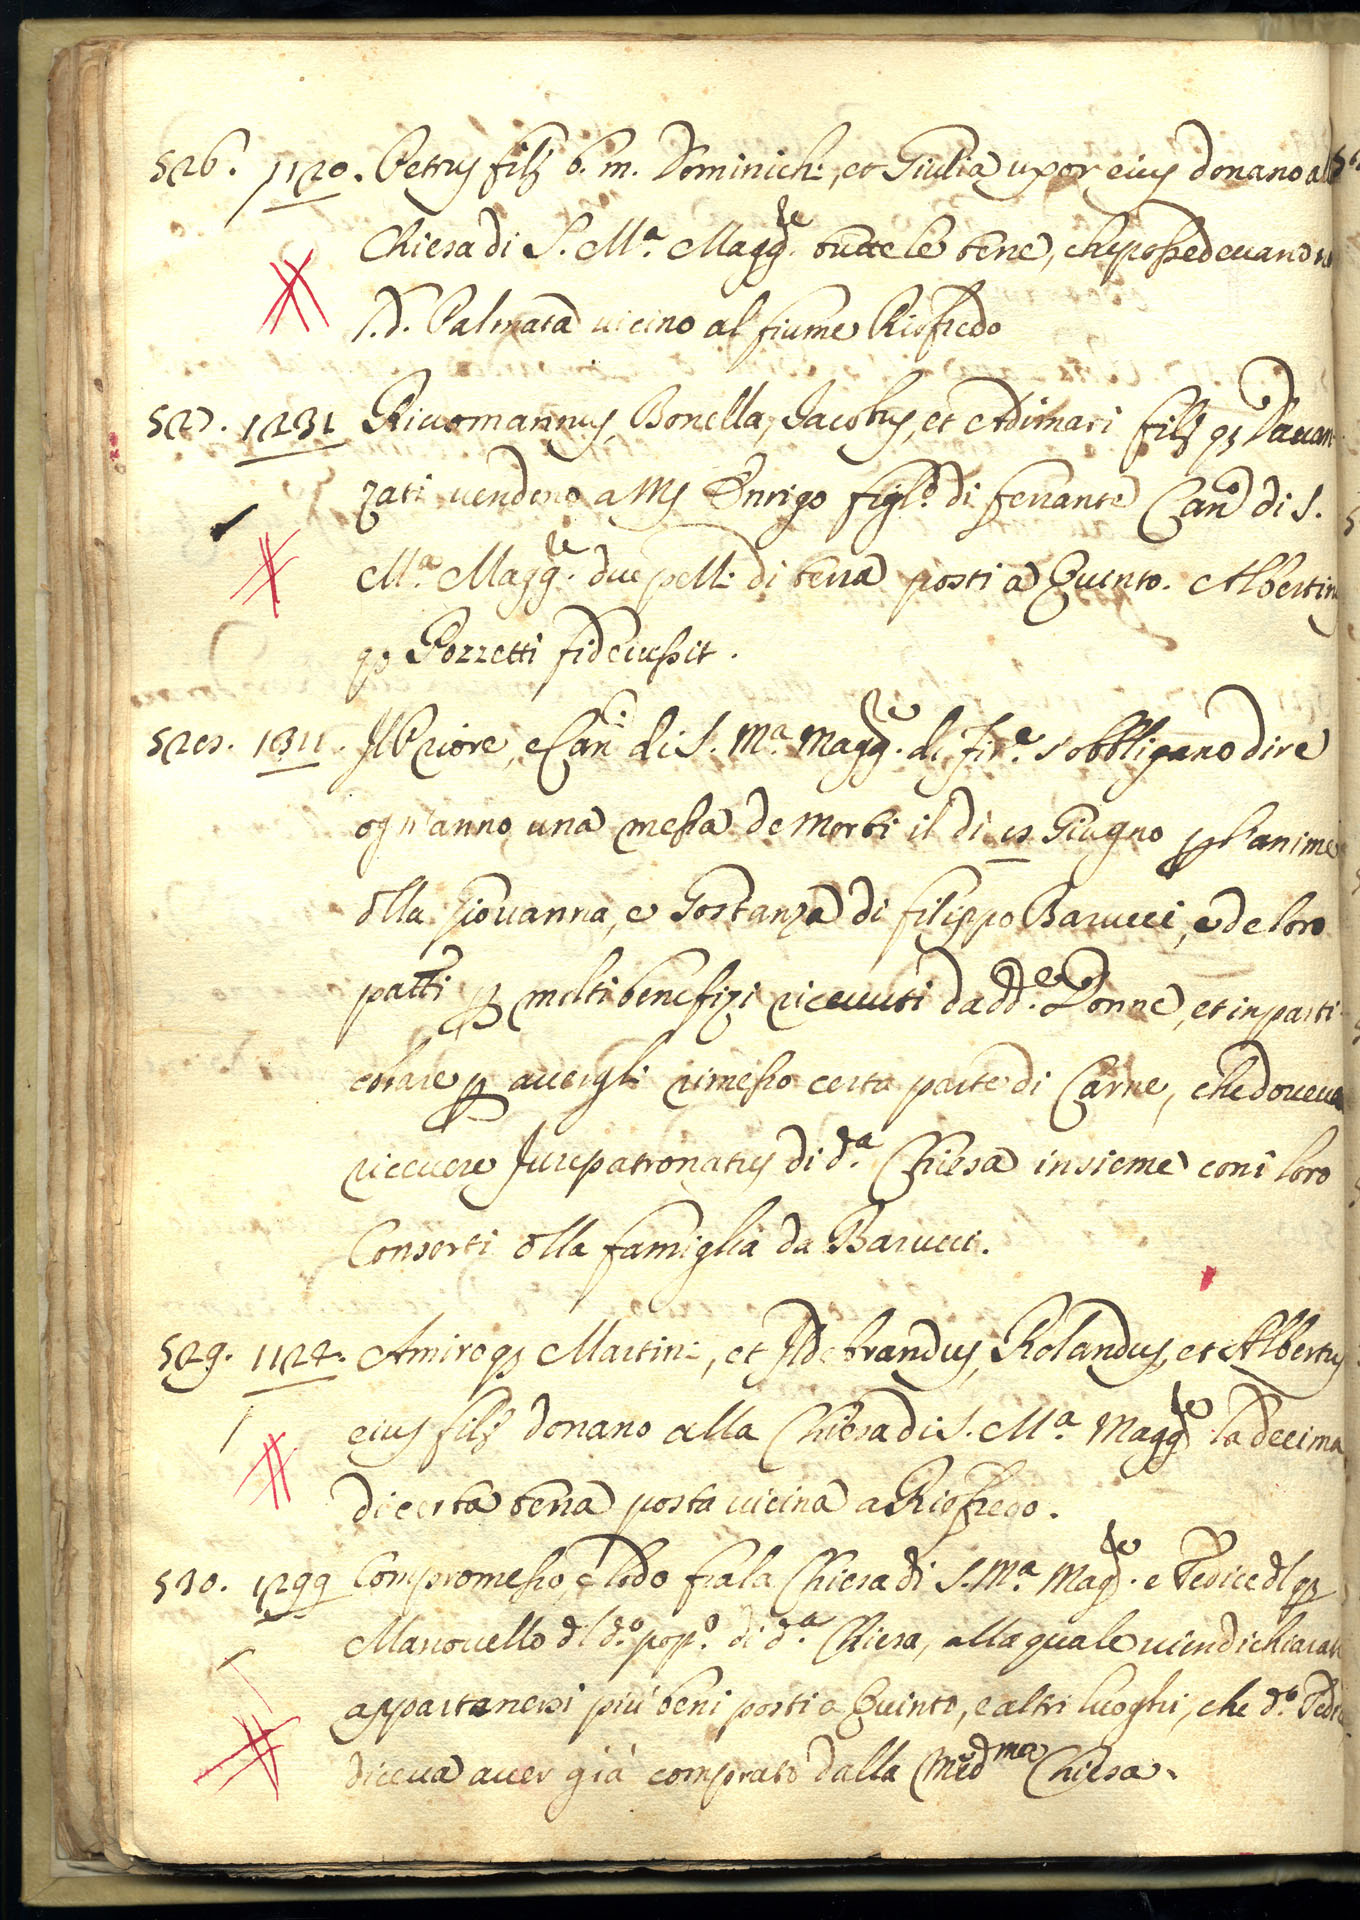 526. 1120. Petrus filij b. m. Dominichi, et Giulia uxor eius donano al
Chiesa di S. Mª. Magg.re tutte le terre, che possedevano in
l. d. Palmata vicino al fiume Riofredo
527. 1231 Rivomannus, Bonella, Jacobus, et Adimari filij qz Davan
zati vendono a Ms Enrigo figlº di ferrante Canº di S.
Mª. Magg.re due pezzi di terra posti a Quinto. Albertin
qz Pozzetti fideiussit.
528. 1311. Il Priore, e Canci di S. Mª. Magg.re di Fir.e s'obbligano dire
ogn'anno una messa de Morti il dì Giugno p l'anime
dlla Giovanna, e Gostanza di filippo Barucci, e de loro
patti p molti benefizi ricevuti da dd.e Donne, et in parti
colare p avergli rimesso certa parte di Carne, che doveva
ricevere Jurepatronatus di d.a Chiesa insieme con i loro
Consorti dlla famiglia da Barucci.
529. 1124. Amiro qz Martini, et Ildebrandus, Rolandus, et Albertus
eius filij donano alla Chiesa di S. Mª Magg.re la decima
di certa terra posta vicina a Riofredo.
530. 1299 Compromesso, e lodo fra la Chiesa di S. Mª. Mag.re e Fedice dl qz
Manovello dl d.º popº. di d.a Chiesa, alla quale vien dichiarato
appartenersi più beni posti a Quinto, e altri luoghi, che d.º Fedice
diceva aver già comprato dalla Med.ma Chiesa.